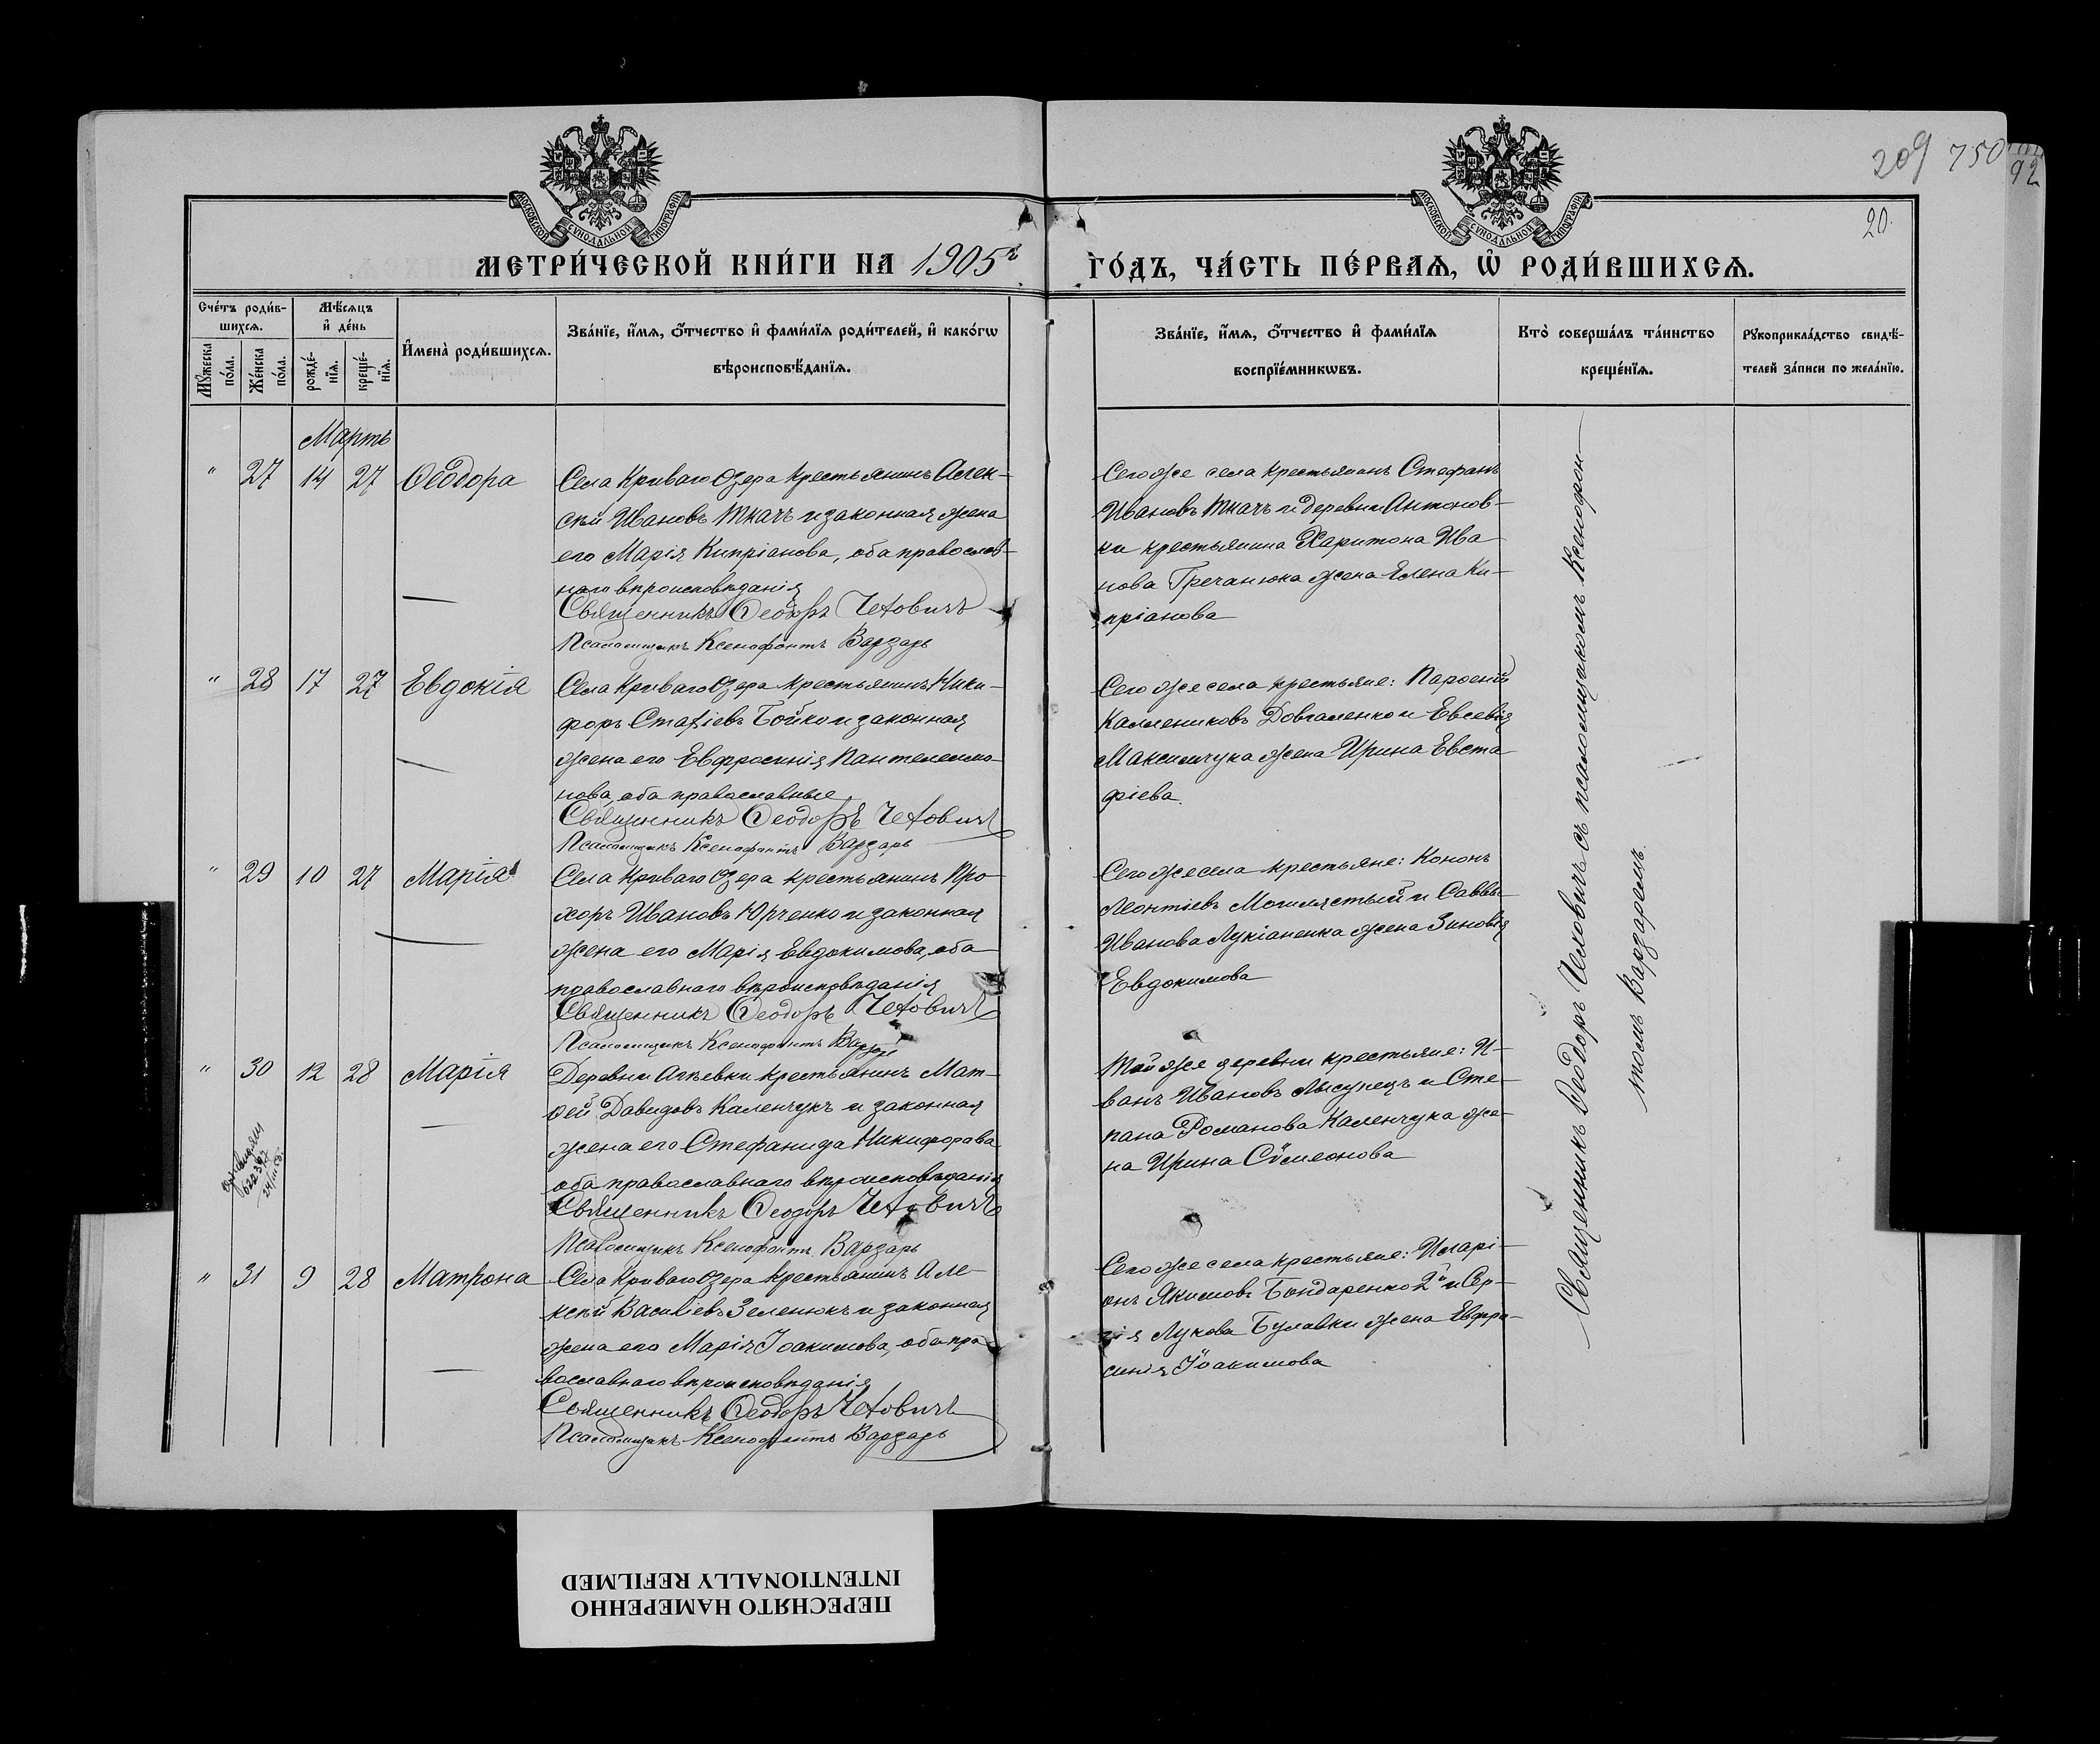 209 750
92
20.
МОСКОВСКОЙ СѴНОДАЛЬНОЙ ТИПОГРАФІИ
МОСКОВСКОЙ СѴНОДАЛЬНОЙ ТИПОГРАФІИ
МЕТРИ́ЧЕСКОЙ КНИ́ГИ НА 1905 г
ГО́ДЪ, ЧА́СТЬ ПЕ́РВАѦ, Ѡ҆ РОДИ́ВШИХСѦ.
Сче́тъ роди́в-
шихсѧ.
Мꙋ́жеска по́ла.
Же́нска по́ла.
Мѣ́сѧцъ
и҆ де́нь
рожде́-
нїѧ.
креще́-
нїѧ.
И҆мена̀ роди́вшихсѧ.
Зва́нїе, и҆́мѧ, ѻ҆́тчество и҆ фами́лїѧ роди́телей, и҆ како́гѡ
вѣроисповѣ́данїѧ.
Зва́нїе, и҆́мѧ, ѻ҆́тчество и҆ фами́лїѧ
воспрїе́мникѡвъ.
Кто̀ соверша́лъ та́инство
креще́нїѧ.
Рꙋкоприкла́дство свидѣ́-
телей за́писи по жела́нїю.
Мартъ
" 27 14 27 Ѳеодора
Села Криваго Озера крестьянинъ Алек-
сѣй Ивановъ Ткачъ и законная жена
его Марія Кипріанова, оба православ-
наго вѣроисповѣданія
Священникъ Ѳеодоръ Человичъ
Псаломщикъ Ксенофонтъ Варзарь
Сегоже села крестьянинъ Стефанъ
Ивановъ Ткачъ и деревни Антонов-
ки крестьянина Харитона Ива
нова Гречанюка жена Елена Ки-
пріанова
" 28 17 27 Евдокія
Села Криваго Озера крестьянинъ Ники-
форъ Стафіевъ Бойко и законная
жена его Евфросинія Пантелеимо-
нова, оба православные
Священникъ Ѳеодоръ Человичъ
Псаломщикъ Ксенофонтъ Варзарь
Сегоже села крестьяне:
Довгаленко и Евсевія
Максимчука жена Ирина Евста
фіева.
" 29 10 27 Марія
Села Криваго Озера крестьянинъ Про
хоръ Ивановъ Юрченко и законная
жена его Марія Евдокимова, оба
православнаго вѣроисповѣданія
Священникъ Ѳеодоръ Человичъ
Псаломщикъ Ксенофонтъ Варзарь
Сегоже села крестьяне: Кононъ
Леонтіевъ и Саввы
Иванова Лукіаненка жена Зиновія
Евдокимова
" 30 12 28 Марія
Деревни крестьянинъ Мат-
ѳей Давидовъ Каленчукъ и законная
жена его Стефанида Никифорова
оба православнаго вѣроисповѣданія
Священникъ Ѳеодоръ Человичъ
Псаломщикъ Ксенофонтъ Варзарь
Той же деревни крестьяне: И-
ванъ Ивановъ и Сте-
пана Романова Каленчука же-
на Ирина Сѵмеонова
" 31 9 28 Матрона
Села Криваго Озера крестьянинъ Але-
ксѣй Василіевъ Зеленюкъ и законная
жена его Марія Іоакимова, оба пра
вославнаго вѣроисповѣданія
Священникъ Ѳеодоръ Человичъ
Псаломщикъ Ксенофонтъ Варзарь
Сегоже села крестьяне: Иларі-
онъ Якимовъ Бондаренко 2й и Сер-
гія Лукова Булавки жена Евфро-
синія Іоакимова
Священникъ Ѳеодоръ Челович съ псаломщикомъ Ксенофон-
томъ Варзаремъ.
ПЕРЕСНЯТО НАМЕРЕННО
INTENTIONALLY REFILMED